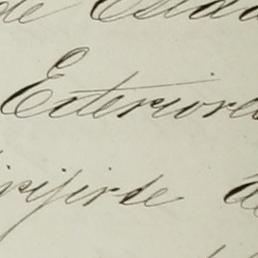 de Estad
Exteriore
irijirse a